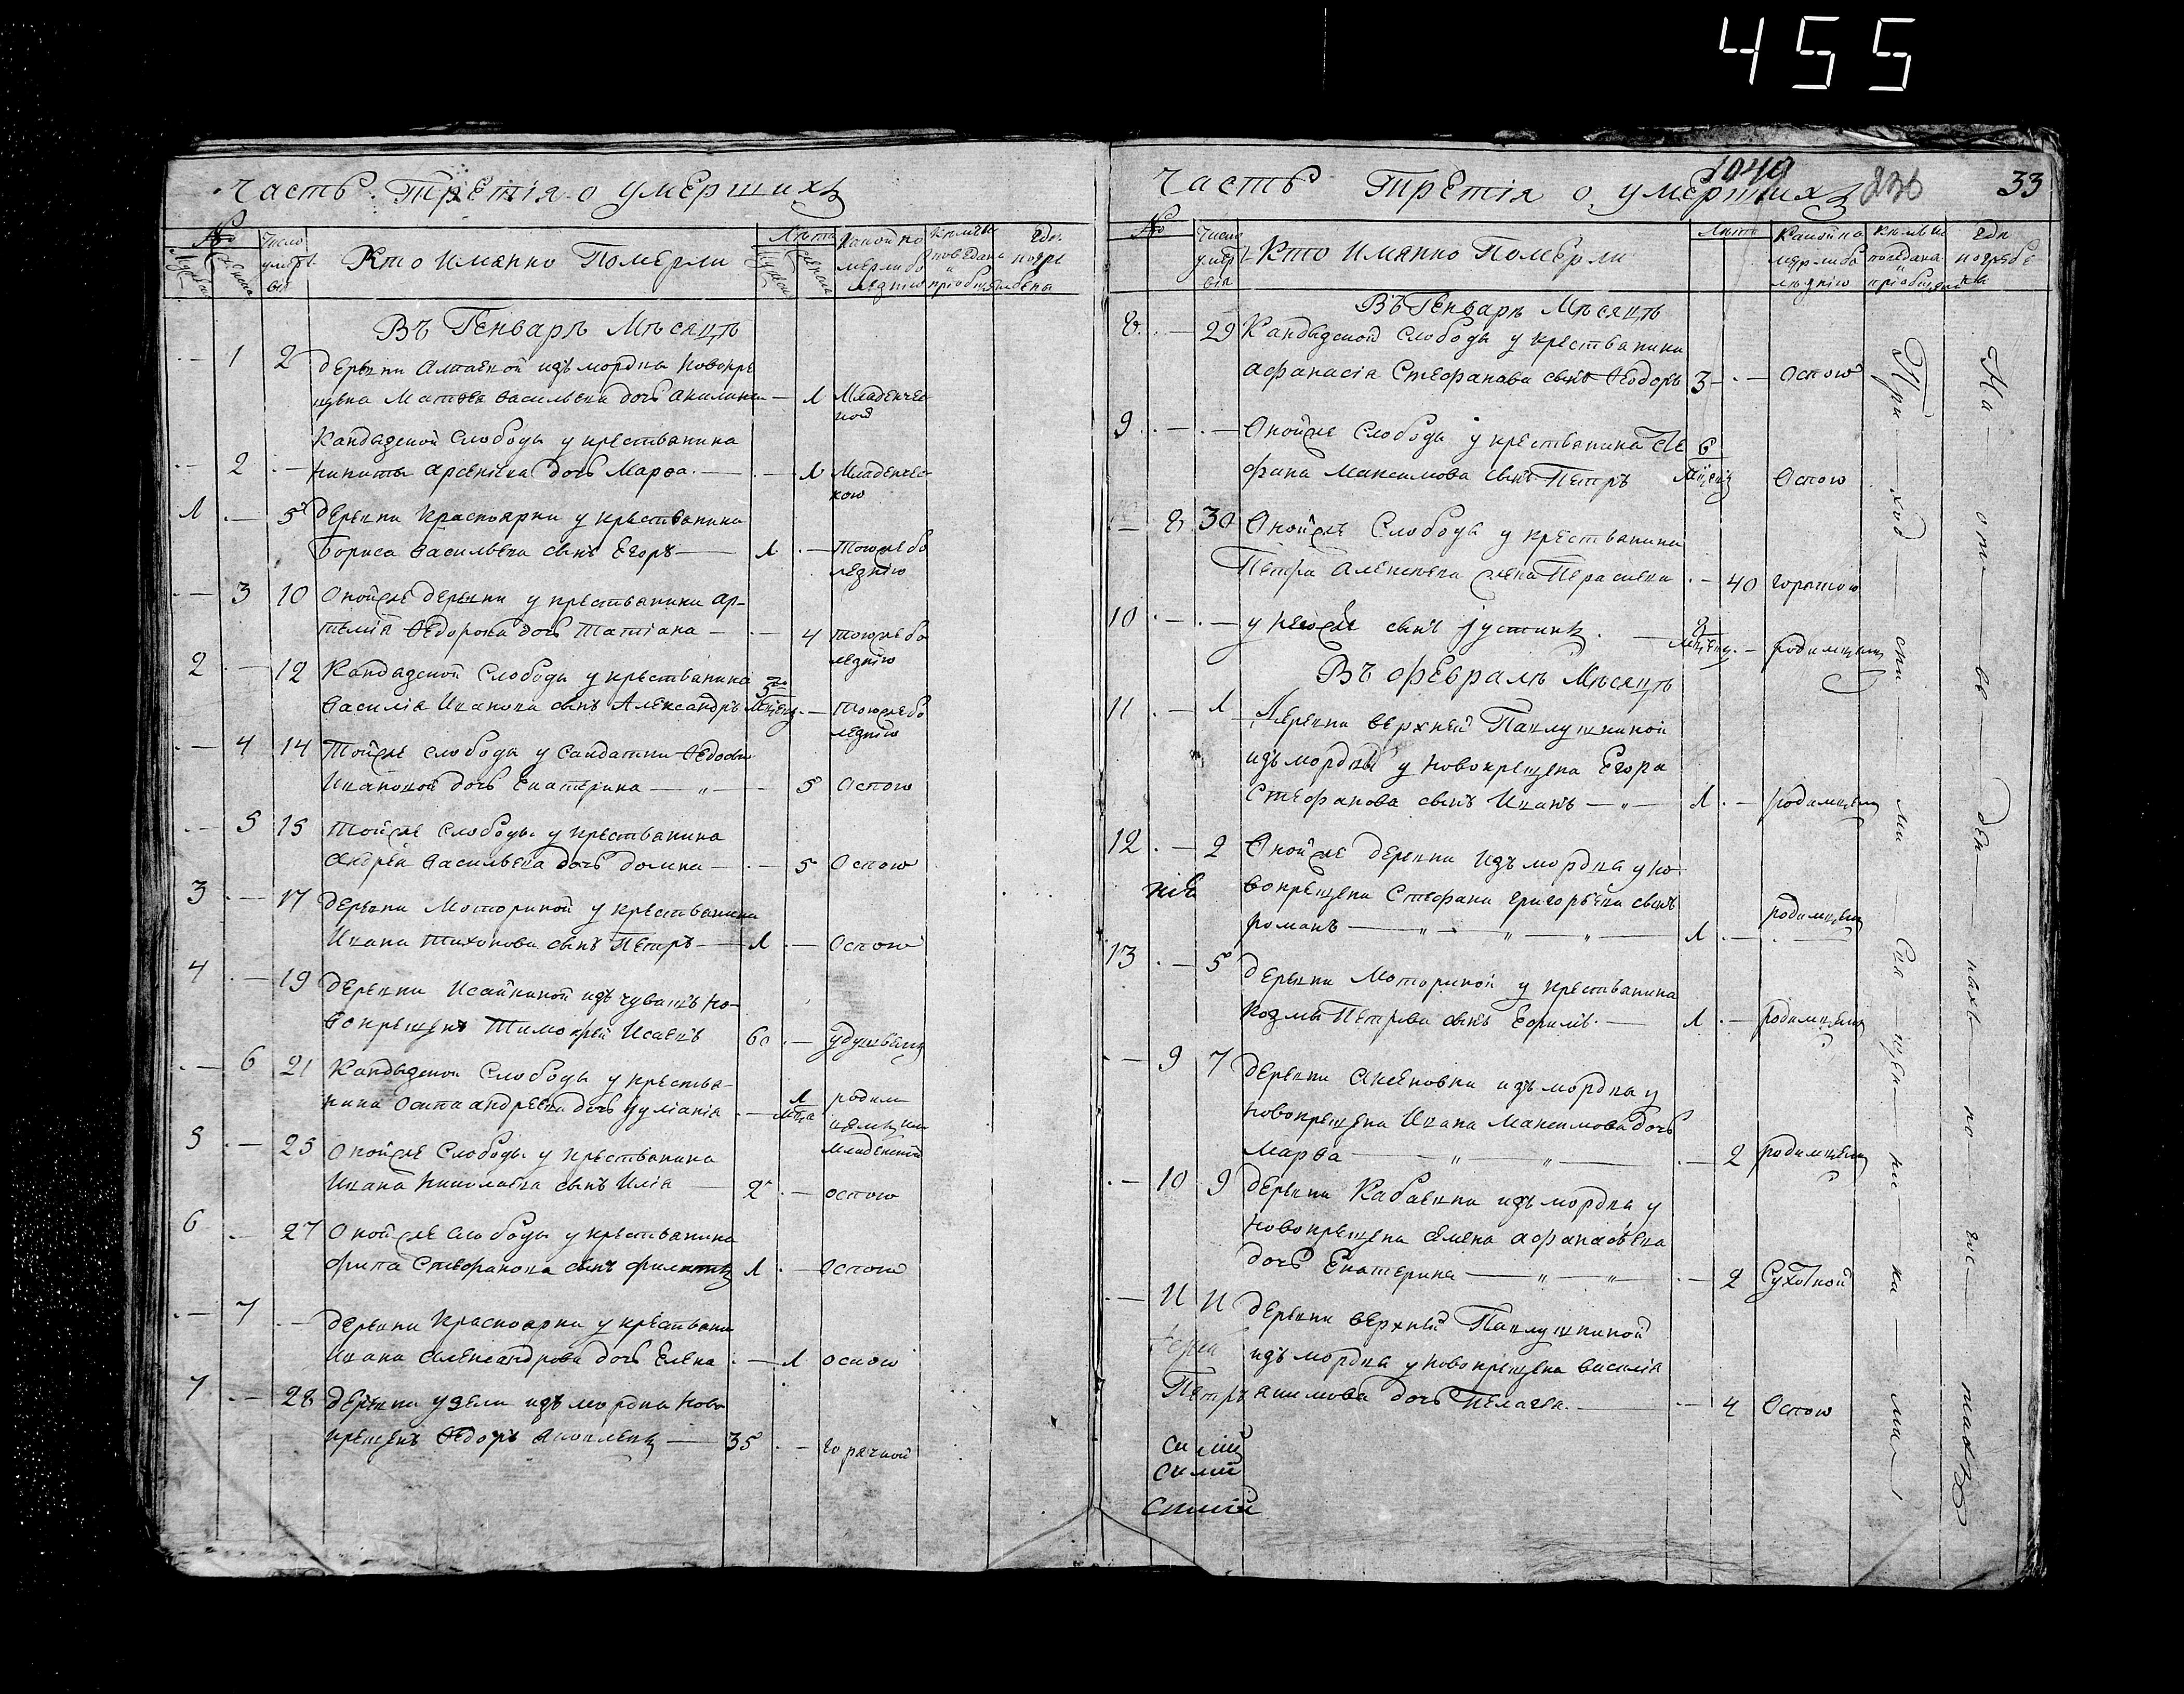 455
Часть Третія о умершихъ
№ Число умерт вія
Кто имянно Померли
Лѣта
Мужеска Женска
Какою бо лезнію
Кѣмъ исповѣданы и пріобщены
Гдѣ погре бены
Въ Генварѣ Мѣсяцѣ
1 2 деревни Алтаевой изъ мордвы новокре
щена Матвея Васильева дочь Акилина 1 Младенчес
кой
Кандызской Слободы у крестьянина
2 Никиты Арсеньева дочь Марѳа 1 Младенчес
кою
1 5 деревни Красноярки у крестьянина
Бориса Васильева сынъ Егоръ 1 Тоюже бо
лезнію
3 10 Оной же деревни у крестьянина Ар-
темія Ѳедорова дочь Татіана 4 тоюже бо
лезнію
2 12 Кандызской Слободы у крестьянина
Василія Иванова сынъ Александръ Тоюже бо
лезнію
4 14 Той же слободы у Салдатки Ѳедосьи
Ивановой дочь Екатерина 5 Оспою
5 15 Той же Слободы у крестьянина
Андрея Васильева дочь Домна 5 Оспою
3 17 деревни Моториной у крестьянина
Ивана Тихонова сынъ Петръ 1 Оспою
4 19 деревни Исайкиной изъ чувашъ но-
вокрещенъ Тимофей Исаевъ 60 удушьемъ
6 21 Кандызской Слободы у крестья-
нина Осипа Андреева дочь Іуліанія 1 мца родим
цемъ
младенский
5 25 Оной же Слободы у крестьянина
Ивана Николаева сынъ Илія 2 оспою
6 27 Оной же слободы у крестьянина
Фила Стефанова сынъ 1 Оспою
7 деревни Красноярки у крестьяни
Ивана Александрова дочь Елена 1 оспою
7 28 деревни Узели изъ мордвы ново
крещенъ Ѳедоръ 35 горячкой
1040 236 33
Часть Третія о умершихъ
№ Число умер вія
Кто Имянно Померли
Лѣта
Какою бо лезнію
Кѣмъ исповѣданы и пріобщены
Гдѣ погребе ны
Въ Генварѣ Мѣсяцѣ
8 29 Кандызской Слободы у крестьянина
Афанасія Стефанова сынъ Ѳеодоръ 3 Оспою
9 Оной же Слободы у крестьянина Те 6
фина Максимова сынъ Петръ Мцевъ Оспою
8 30 Оной же Слободы у крестьянина
Петра Алексеева жена 40 горячкой
10 у него же сынъ Іустинъ родимцемъ
Въ Февралѣ Мѣсяцѣ
11 1 Деревни верхней Павлушкиной
изъ мордвы у новокрещена Егора
Стефанова сынъ Иванъ 1 родимцемъ
12 2 Оной же деревни изъ мордвы у но-
вокрещена Стефана Григорьева сынъ
романъ 1 родимцемъ
13 5 деревни Моториной у крестьянина
Козмы Петрова сынъ Ефимъ 1 родимцемъ
9 7 деревни Аксеновки изъ мордвы у
новокрещена Ивана Максимова дочь
Марѳа 2 родимцемъ
10 9 деревни Кабаевки изъ мордвы у
новокрещена Семена Афанасьева
дочь Екатерина 2 Сухоткой
11 11 деревни верхней Павлушкиной
изъ мордвы у новокрещена Василія
Акимова дочь Пелагея 4 Оспою
Петръ
При ход ски ми Свя щен ни ка ми
На о ни во ден ныхъ по гос тахъ